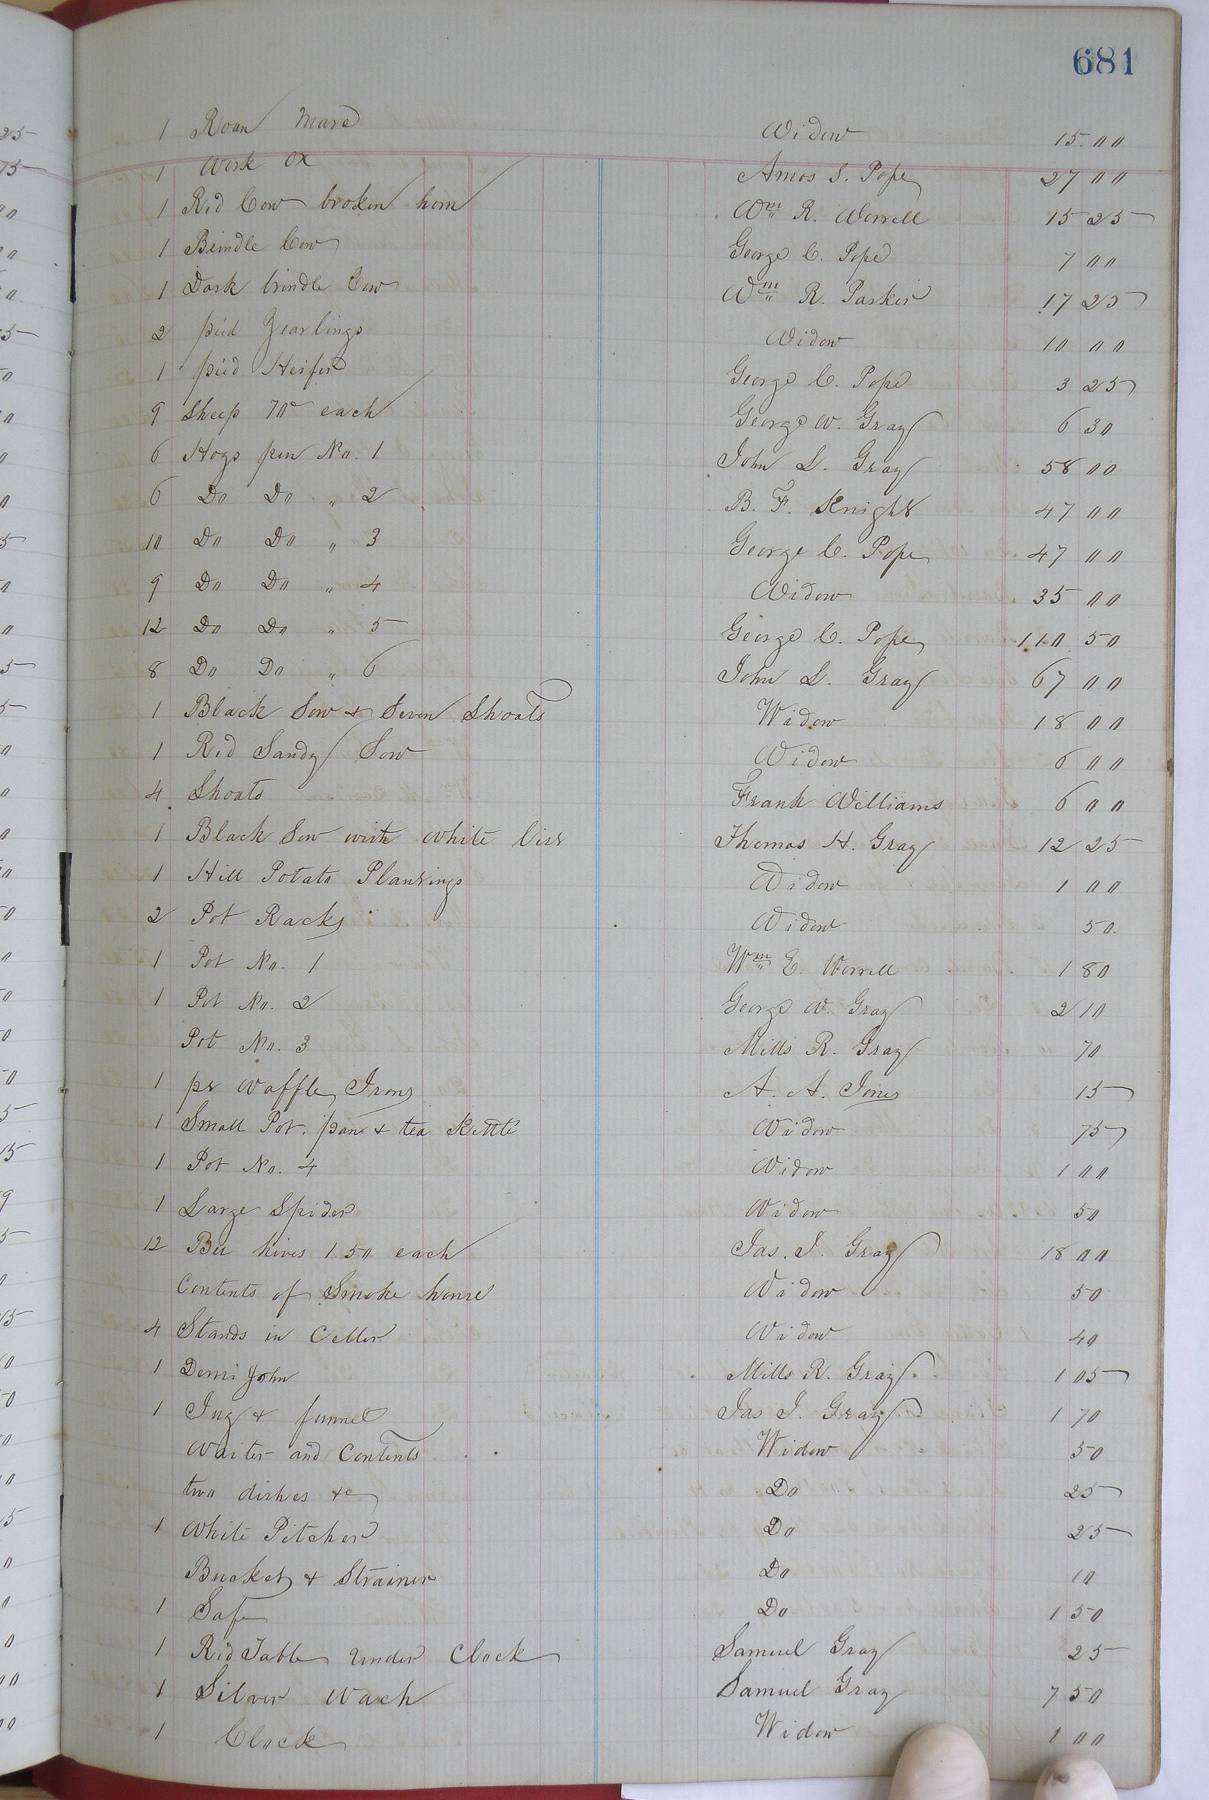 681
1 Roan Mare Widow 15.00
1 Work Ox Amos S. Pope 27 00
1 Red Cow broken horn Wm R. Worrell 15 25
1 Brindle Cow George C. Pope 7 00
1 Dark brindle Cow Wm R. Parker 17 25
2 pied Yearlings Widow 10 00
1 pied Heifer George C. Pope 3 25
9 Sheep 70c each George W. Gray 6 30
6 Hogs pen No. 1 John L. Gray 58 00
6 Do Do " 2 B. F. Knight 47 00
10 Do Do " 3 George C. Pope 47 00
9 Do Do " 4 Widow 35 00
12 Do Do " 5 George C. Pope 110 50
8 Do Do " 6 John L. Gray 67 00
1 Black Sow & Seven Shoats Widow 18 00
1 Red Sandy Sow Widow 6 00
4 Shoats Frank Williams 6 00
1 Black Sow with White List Thomas H. Gray 12 25
1 Hill Potato Plantings Widow 1 00
2 Pot Racks Widow 50
1 Pot No. 1 Wm E. Worrell 1 80
1 Pot No. 2 George W. Gray 2 10
Pot No. 3 Mills R. Gray 70
1 pr Waffle Irons A. A. Jones 15
1 Small Pot. pan & tea Kettle Widow 75
1 Pot No. 4 Widow 1 00
1 Large Spider Widow 50
12 Bee hives 1.50 each Jas. J. Gray 18 00
Contents of Smoke house Widow 50
4 Stands in Celler Widow 40
1 Demi John Mills R. Gray 1 05
1 Jug & funnel Jas J. Gray 1 70
Waiter and Contents Widow 50
two dishes &c Do 25
1 White Pitcher Do 25
Bucket & Strainer Do 10
1 Safe Do 1 50
1 Red Table under Clock Samuel Gray 25
1 Silver Wach Samuel Gray 7 50
1 Clock Widow 1 00